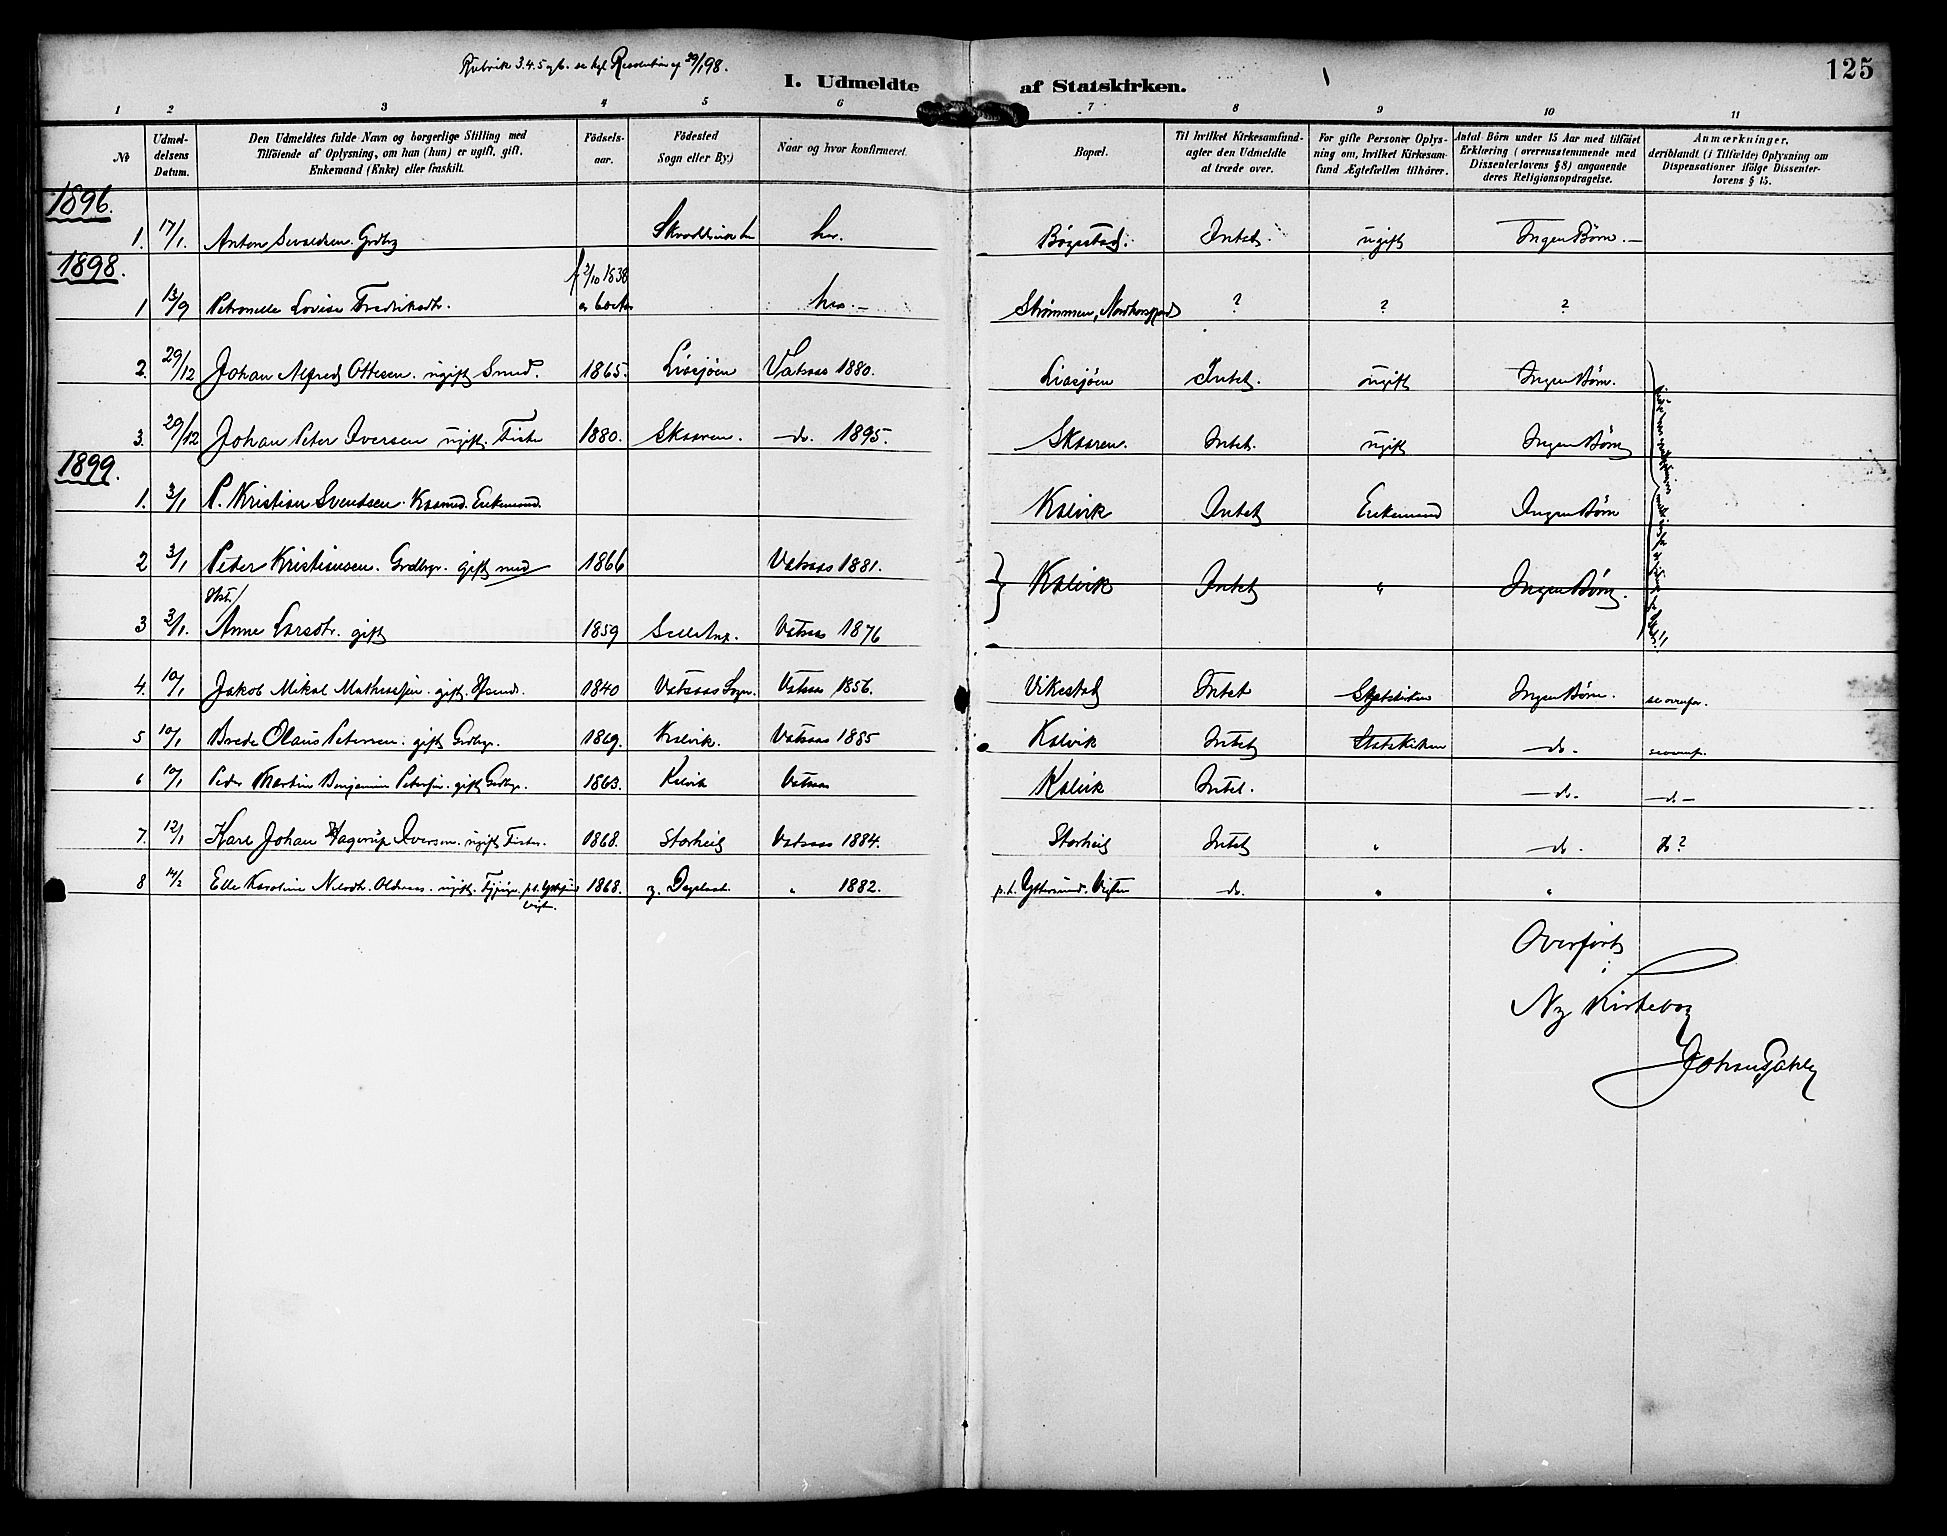 Rubrik 3.4.5 og 6. se kgl. Resolution af 29/1 98.
I. Udmeldte af Statskirken.
125
1 2 3 4 5 6 7 8 9 10 11
No
Udmeldelsens Datum.
Den Udmeldtes fulde Navn og borgerlige Stilling med
Tilføiende af Oplysning, om han (hun) er ugift, gift,
Enkemand (Enke) eller fraskilt.
Fødselsaar.
Fødested
Sogn eller By.)
Naar og hvor konfirmeret.
Bopæl.
Til hvilket Kirkesamfund
agter den Udmeldte
at træde over.
For gifte Personer Oplysning
om, hvilket Kirkesamfund
Ægtefællen tilhører.
Antal Børn under 15 Aar med tilføiet
Erklæring (overensstemmende med
Dissenterlovens § 8) angaaende
deres Religionsopdragelse.
Anmærkninger,
deriblandt (i Tilfælde) Oplysning om
Dispensationer ifølge Dissenterlovens § 15.
1896.
1. 17/1. Anton Sivaldsen. Grdbrg her. Bøgestad. Intet. ugift Ingen Børn. —
1898.
1 13/9 Petronelle Lovise Fredriksdtr. f 2/10 1838 her. — Strømmen, ? ? ?
2. 29/12 Johan Alfred Ottesen. ugift Smed. 1865. Liasjøen Vatsaas 1880. Liasjøen Intet. ugift Ingen Børn.
3. 29/12 Johan Peter Iversen ugift. Fisker 1880. Skaaren. — do. 1895. Skaaren. Intet. ugift Ingen Børn
1899.
1. 3/1 P. Kristian Svendsen. Kaarmd. Enkemand. Kalvik Intet Enkemand Ingen Børn
2 3/1 Peter Kristiansen. Grdbrgr. gift med 1866 Vatsaas 1881. Kalvik Intet " Ingen Børn.
3 3/1. Hst. Anne Larsdtr. gift 1859 Vatsaas 1876
4. 10/1 Jakob Mikal Mathiassen. gift. Husmd. 1840 Vatsaas Sogn. Vatsaas 1856. Vikestad Intet Statskirken Ingen Børn. se ovenfor.
5 10/1 Brede Olaus Petersen. gift Grdbgr. 1869. Kalvik. Vatsaas 1885 Kalvik Intet Statskirken — do. seovenf.
6 10/1 Peder Martin Benjamin Petersen. gift Grdbgr. 1863. Kalvik Vatsaas Kalvik Intet. — do. — do —
7. 12/1 Karl Johan Hagerup Iversen. ugift Fisker. 1868. Storheil Vatsaas 1884. Storheil Intet " — do. do ?
8 14/2 Elle Karoline Nilsdtr. ugift. p.t. 1868. " 1882. p.t. Yttersund. Vigten — do. " "
Overført
i
Ny Kirkebog